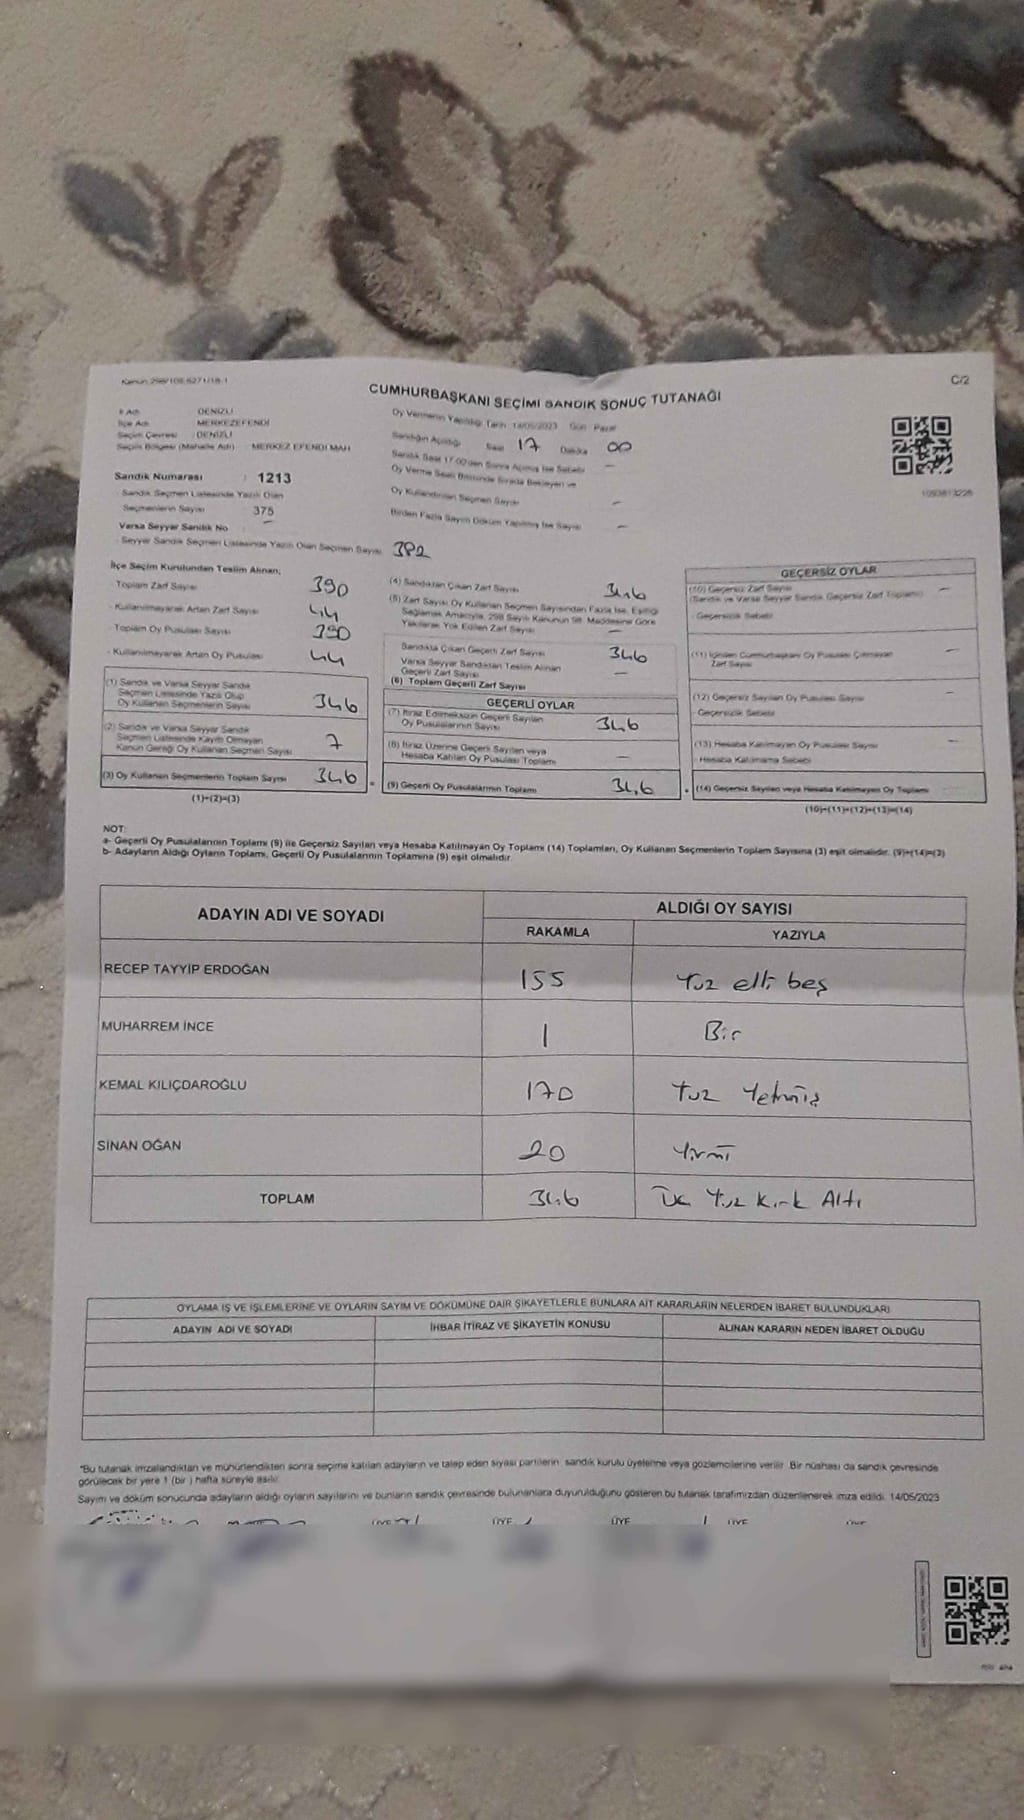 CUMHURBAŞKANI SEÇİMİ SANDIK SONUÇ TUTANAĞI
C/2
İl Adı DENİZLİ
İlçe Adı MERKEZEFENDİ
Seçim Çevresi : DENİZLİ
Seçim Bölgesi (Mahalle Adı) : MERKEZ EFENDİ MAH
Sandık Numarası : 1213
Sandık Seçmen Listesinde Yazılı Olan
Seçmenlerin Sayısı 375
Varsa Seyyar Sandık No –
Seyyar Sandık Seçmen Listesinde Yazılı Olan Seçmen Sayısı 382
Oy Vermenin Yapıldığı Tarih 14/05/2023 Gün Pazar
Sandığın Açıldığı Saat 17 Dakika 00
Sandık Saat 17:00'den Sonra Açılmış İse Sebebi –
Oy Verme Saati Bitiminde Sırada Bekleyen ve
Oy Kullandırılan Seçmen Sayısı –
Birden Fazla Sayım Döküm Yapılmış İse Sayısı –
İlçe Seçim Kurulundan Teslim Alınan;
Toplam Zarf Sayısı 390
- Kullanılmayarak Artan Zarf Sayısı 44
Toplam Oy Pusulası Sayısı 390
- Kullanılmayarak Artan Oy Pusulası 44
(1) Sandık ve Varsa Seyyar Sandık
Seçmen Listesinde Yazılı Olup
Oy Kullanan Seçmenlerin Sayısı 346
(2) Sandık ve Varsa Seyyar Sandık
Seçmen Listesinde Kayıtlı Olmayan
Kanun Gereği Oy Kullanan Seçmen Sayısı 7
(3) Oy Kullanan Seçmenlerin Toplam Sayısı 346
(1)+(2)=(3)
(4) Sandıktan Çıkan Zarf Sayısı 346
(5) Zarf Sayısı Oy Kullanan Seçmen Sayısından Fazla İse, Eşitliği
Sağlamak Amacıyla, 298 Sayılı Kanunun 98. Maddesine Göre
Yakılarak Yok Edilen Zarf Sayısı –
Sandıkta Çıkan Geçerli Zarf Sayısı 346
Varsa Seyyar Sandıktan Teslim Alınan
Geçerli Zarf Sayısı –
(6) Toplam Geçerli Zarf Sayısı
GEÇERLİ OYLAR
(7) İtiraz Edilmeksizin Geçerli Sayılan
Oy Pusulalarının Sayısı 346
(8) İtiraz Üzerine Geçerli Sayılan veya
Hesaba Katılan Oy Pusulası Toplamı –
(9) Geçerli Oy Pusulalarının Toplamı 346
GEÇERSİZ OYLAR
(10) Geçersiz Zarf Sayısı –
(Sandık ve Varsa Seyyar Sandık Geçersiz Zarf Toplamı)
- Geçersizlik Sebebi
(11) İçinden Cumhurbaşkanı Oy Pusulası Çıkmayan –
Zarf Sayısı
(12) Geçersiz Sayılan Oy Pusulası Sayısı –
- Geçersizlik Sebebi
(13) Hesaba Katılmayan Oy Pusulası Sayısı –
- Hesaba Katılmama Sebebi
(14) Geçersiz Sayılan veya Hesaba Katılmayan Oy Toplamı
(10)+(11)+(12)+(13)=(14)
NOT:
a- Geçerli Oy Pusulalarının Toplamı (9) ile Geçersiz Sayılan veya Hesaba Katılmayan Oy Toplamı (14) Toplamları, Oy Kullanan Seçmenlerin Toplam Sayısına (3) eşit olmalıdır. (9)+(14)=(3)
b- Adayların Aldığı Oyların Toplamı, Geçerli Oy Pusulalarının Toplamına (9) eşit olmalıdır.
ADAYIN ADI VE SOYADI
ALDIĞI OY SAYISI
RAKAMLA YAZIYLA
RECEP TAYYİP ERDOĞAN 155 Yüz elli beş
MUHARREM İNCE 1 Bir
KEMAL KILIÇDAROĞLU 170 Yüz Yetmiş
SİNAN OĞAN 20 Yirmi
TOPLAM 346 Üç Yüz Kırk Altı
OYLAMA İŞ VE İŞLEMLERİNE VE OYLARIN SAYIM VE DÖKÜMÜNE DAİR ŞİKAYETLERLE BUNLARA AİT KARARLARIN NELERDEN İBARET BULUNDUKLARI
ADAYIN ADI VE SOYADI
İHBAR İTİRAZ VE ŞİKAYETİN KONUSU
ALINAN KARARIN NEDEN İBARET OLDUĞU
"Bu tutanak imzalandıktan ve mühürlendikten sonra seçime katılan adayların ve talep eden siyasi partilerin sandık kurulu üyelerine veya gözlemcilerine verilir. Bir nüshası da sandık çevresinde
görülecek bir yere 1 (bir ) hafta süreyle asılır.
Sayım ve döküm sonucunda adayların aldığı oyların sayılarını ve bunların sandık çevresinde bulunanlara duyurulduğunu gösteren bu tutanak tarafımızdan düzenlenerek imza edildi. 14/05/2023
ÜYE ÜYE ÜYE ÜYE